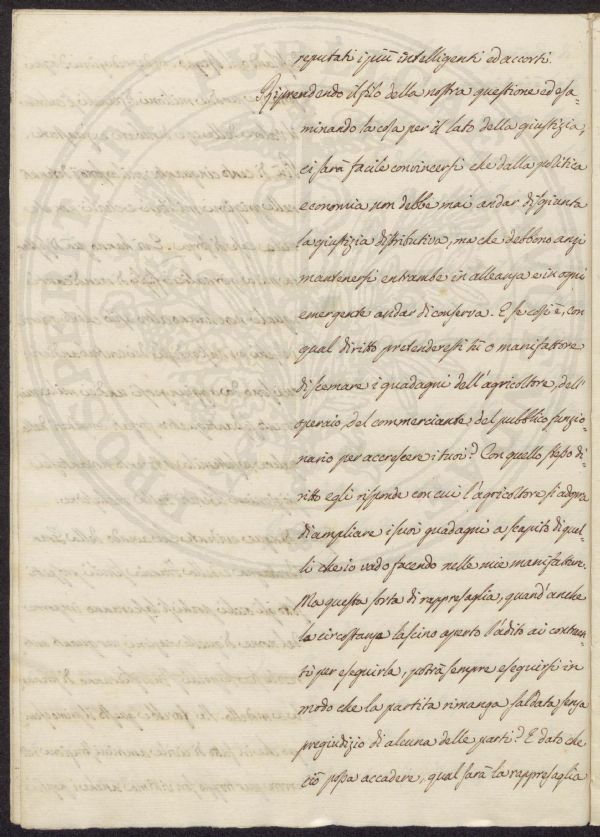 reputati i più intelligenti ed accorti.
Riprendendo il filo della nostra questione ed esa-
minando la cosa per il lato della giustizia,
ci sarà facile convincersi che dalla politica
economia non debbe mai andar disgiunta
la giustizia distributiva, ma che debbono anzi
mantenersi entrambe in alleanza e in ogni
emergente andar di conserva. E se così è, con
qual diritto pretenderesti tu o manifattore
di scemare i guadagni dell'agricoltore, dell'
operaio, del commerciante, del pubblico funzio-
nario per accrescere i tuoi? Con quello stesso di-
ritto egli risponde con cui l'agricoltore si adopra
di ampliare i suoi guadagni a scapito di quel-
li che io vado facendo nelle mie manifatture.
Ma questa sorta di rappresaglia, quand'anche
la circostanza lascino aperto l'adito ai conten-
ti per eseguirla, potrà sempre eseguirsi in
modo che la partita rimanga saldata senza
pregiudizio di alcuna delle parti? E dato che
ciò possa accadere, qual sarà la rappresaglia
PROSPERITATI